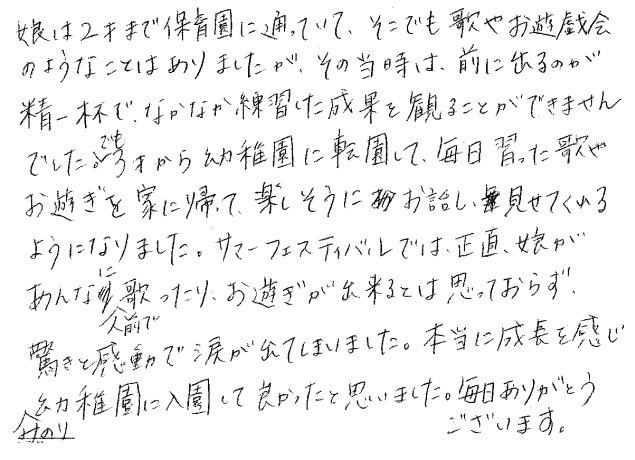 娘は2才まで保育園に通っていて、そこでも歌やお遊戯会
のようなことはありましたが、その当時は、前に出るのが
精一杯で、なかなか練習した成果を観ることができません
でした。でも3才から幼稚園に転園して、毎日習った歌や
お遊ぎを家に帰って、楽しそうにお話し、見せてくれる
ようになりました。サマーフェスティバルでは、正直、娘が
あんなに人前で歌ったり、お遊ぎが出来るとは思っておらず、
驚きと感動で涙が出てしまいました。本当に成長を感じ
みのり幼稚園に入園して良かったと思いました。毎日ありがとう
ございます。